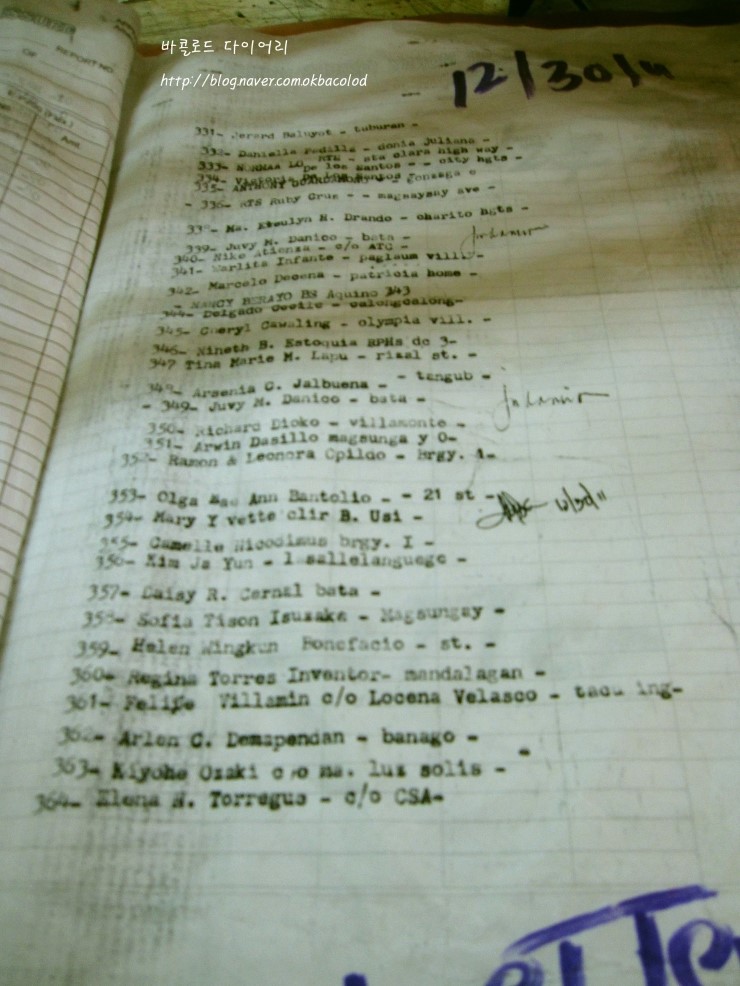 바콜로드 다이어리
http://blog.naver.com.okbacolod
12/30/11
OF REPORT NO.
331- Jerard Baluyot - tuburan -
332- Daniella Padilla - donia Juliana -
333- LO RTE - sta clara high way -
334- Victoria De Los Santos - - city hgts -
335- ANTHONY - Gonzaga
- 336- RTS Ruby Cruz - - magsaysay ave -
338- Ma. N. Drando - charito hgts -
339- Juvy M. Danico - bata -
340- Mike Atienza - c/o ATC -
341- Marlita Infante - paglaum
342- Marcelo Decena - patricia home -
- NANCY BERAYO BS Aquino 343
344- Delgado Cecile -
345- Cheryl Cawaling - olympia vill. -
346- Nineth B. Estoquia BPHs dc 3-
347 Tina Marie M. Lapu - rizal st. -
348- Arsenia C. Jalbuena - - tangub -
- 349- Juvy M. Danico - bata -
350- Richard Dioko - villamonte -
351- Arwin Dasillo magsunga y O-
352- Ramon & Leonora Opildo - Brgy. 1-
353- Olga Mae Ann Bantolio - - 21 st -
354- Mary Y vette clir B. Usi -
355- Camelle Nicodimus brgy. I -
356- Kim Ja Yun - lasallelanguege -
357- Daisy R. Cernal bata -
358- Sofia Tison Isuzaka - Magsungay -
359- Helen Wingken Bonefacio - st. -
360- Regina Torres Inventor- mandalagan -
361- Felife Villamin c/o Locena Velasco - tacu ing-
362- Arlen C. Demapendan - banago -
363- Kiyohe Ozaki c/o ma. luz solis -
364- Elena N. Torregue - c/o CSA-